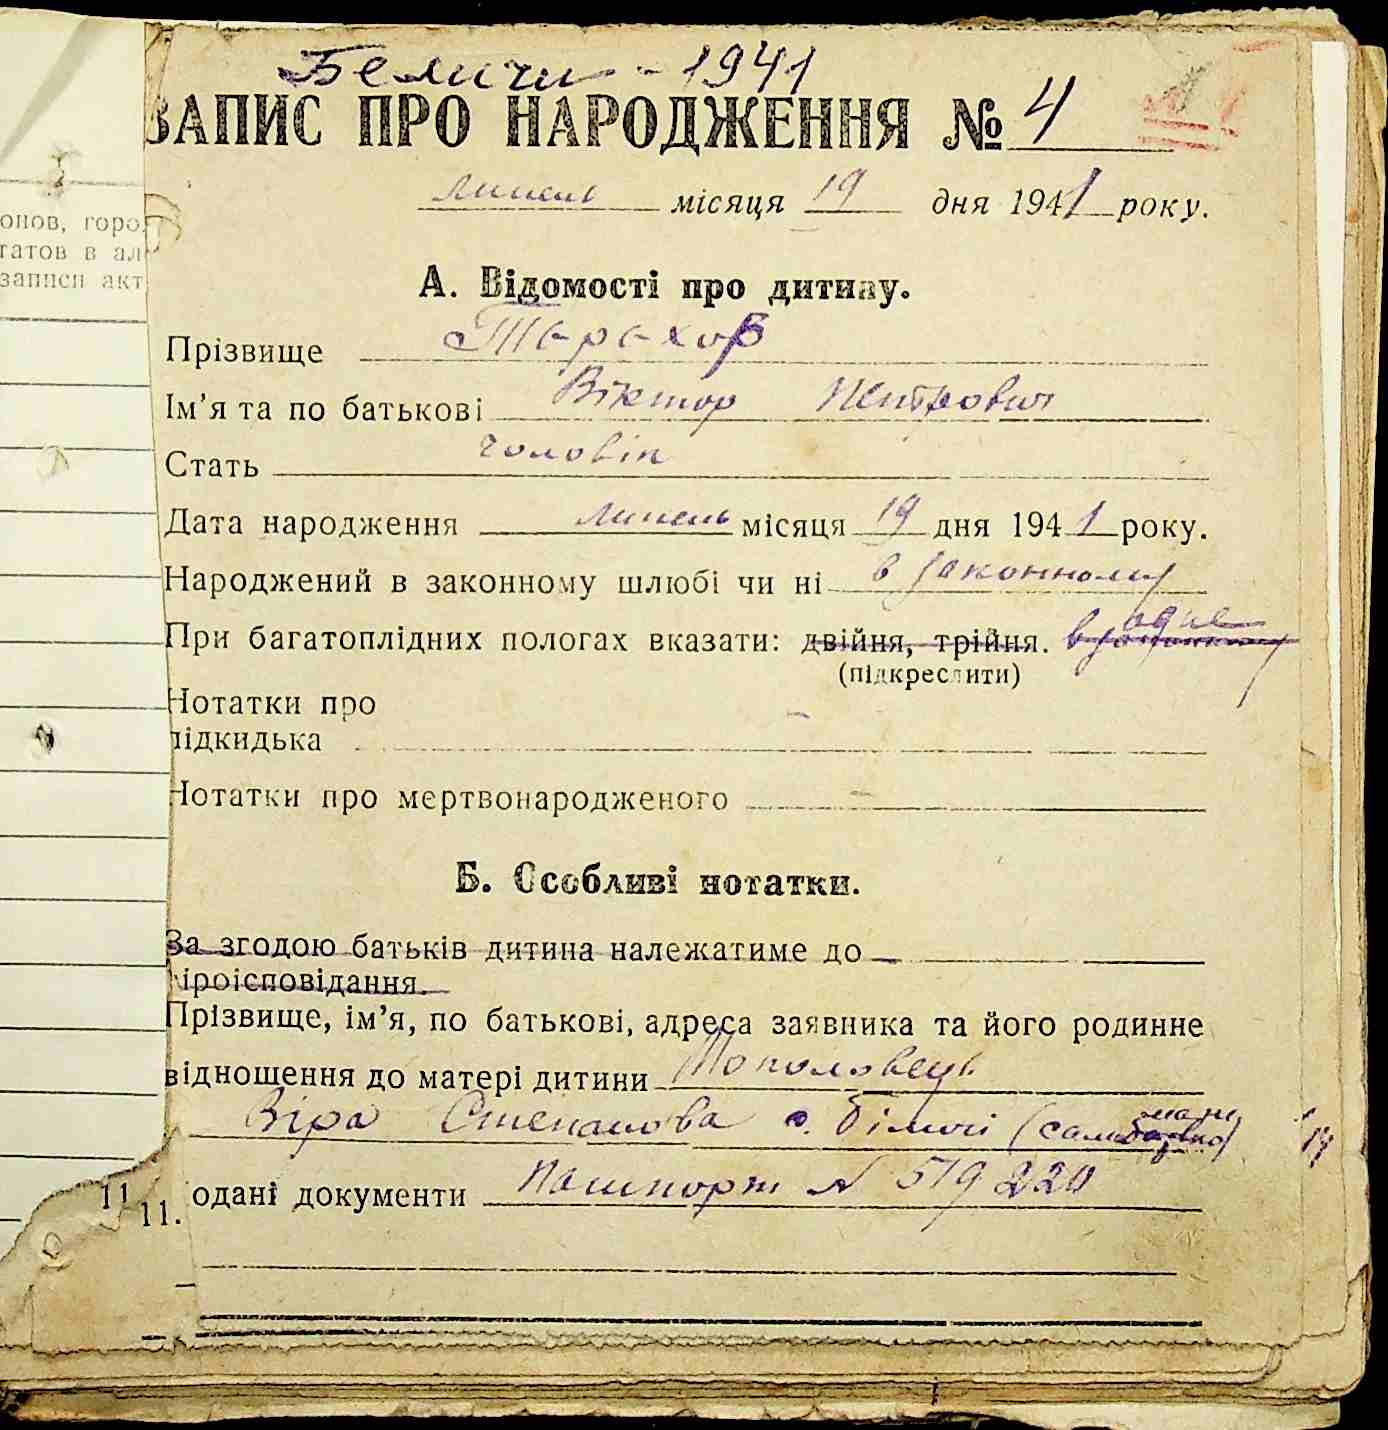 Беличи - 1941
ЗАПИС ПРО НАРОДЖЕННЯ № 4
липень місяця 19 дня 1941 року.
онов, горо
татов в ал
записи акт
А. Відомості про дитину.
Прізвище
Ім’я та по батькові Віктор Петрович
Стать чоловіч
Дата народження липень місяця 19 дня 1941 року.
Народжений в законному шлюбі чи ні в законному
При багатоплідних пологах вказати: двійня, трійня. одне
(підкреслити)
Нотатки про
підкидька -
Нотатки про мертвонародженого -
Б. Особливі нотатки.
За згодою батьків дитина належатиме до
віроісповідання.
Прізвище, ім’я, по батькові, адреса заявника та його родинне
відношення до матері дитини Тополовець
Віра Степанова с. Біличі (сама мати)
11 11. одані документи Пашпорт N 519220